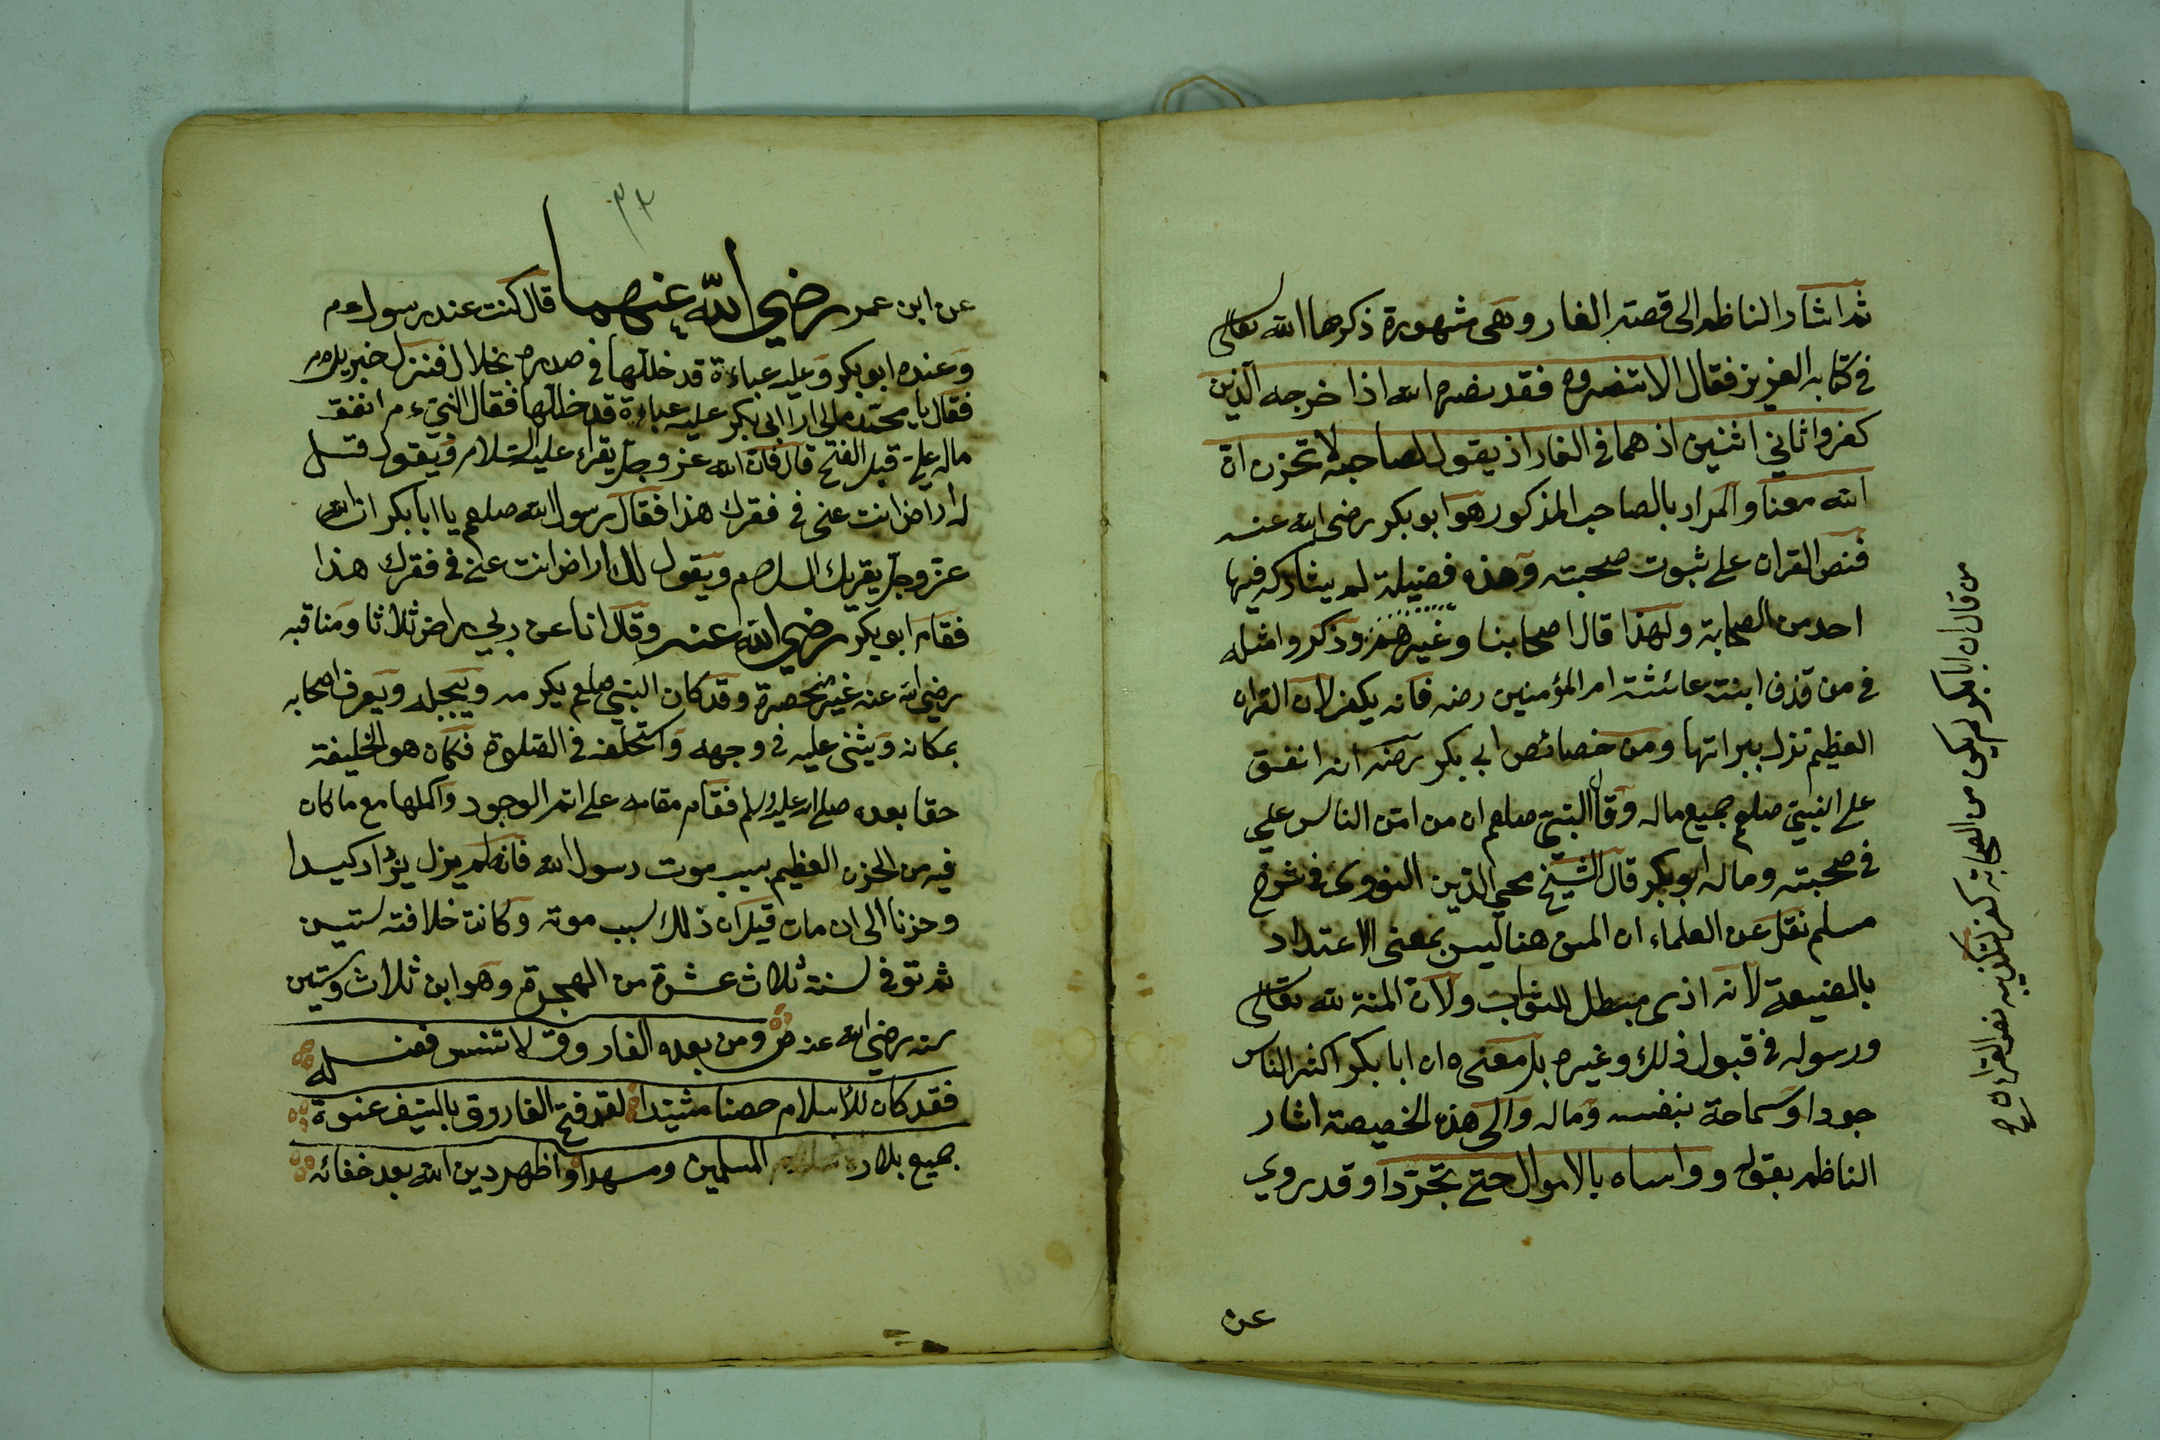 ثم اشار الناظم الى قصة الغار وهى مشهورة ذكرها الله تعالى
فى كتابه العزيز فقال الا تنصروه فقد نصره الله اذ اخرجه الذين
كفروا ثاني اثنين اذ هما فى الغار اذ يقول لصاحبه لا تحزن ان
الله معنا والمراد بالصاحب المذكور هو ابو بكر رضى الله عنه
فنص القران على ثبوت صحبته وهذه فضيلة لم يشاركه فيها
احد من الصحابة ولهذا قال اصحابنا وغيرهم وذكروا مثله
فى من قذف ابنته عائشة ام المؤمنين رضه فانه يكفر لان القران
العظيم نزل ببراتها ومن خصائص ابي بكر رضه انه انفق
على النبي صلعم جميع ماله وقال النبي صلعم ان من امن الناس علي
فى صحبته وماله ابو بكر قال الشيخ محي الدين النووى فى شرح
مسلم نقل عن العلماء ان المن هنا ليس بمعنى الاعتداد
بالصنيعة لانه اذى مبطل للثواب ولان المنة لله تعالى
ورسوله فى قبول ذلك وغيره بل معنى ه ان ابا بكر اكثر الناس
جودا وسماحة بنفسه وماله والى هذه الخصيصة اشار
الناظم بقوله وواساه بالاموال حتى تجردا وقد روي
عن
من قال ان ابا بكر لم يكن من الصحابة كفر لتكذيبه نص القران
٣٢
عن ابن عمر رضي الله عنهما قال كنت عند رسول ءم
وعنده ابو بكر وعليه عباءة قد خللها فى صدره بخلال فنزل جبريل ءم
فقال يا محمد مالى ارا ابى بكر عليه عباءة قد خللها فقال النبي ءم انفق
ماله علي قبل الفتح قال فان الله عز وجل يقراء عليه السلام ويقول قل
له اراض انت عنى فى فقرك هذا فقال رسول الله صلعم يا ابا بكر ان الله
عز وجل يقريك السلام ويقول لك اراض انت عنى فى فقرك هذا
فقام ابو بكر رضي الله عنه وقال انا عن ربي راض ثلاثا ومناقبه
رضي الله عنه غير منحصرة وقد كان النبي صلعم يكرمه ويبجله ويعرف اصحابه
بمكانه ويثنى عليه فى وجهه واستخلفه فى الصلوة فكان هو الخليفة
حقا بعده صلى الله عليه وسلم فقام مقامه على اتم الوجود واكملها مع ما كان
فيه من الحزن العظيم بسبب موت رسول الله فانه لم يزل يزداد كيدا
وحزنا الى ان مات قيل ان ذلك سبب موته وكانت خلافته سنتين
ثم توفى سنة ثلاث عشرة من الهجرة وهو ابن ثلاث وستين
سنة رضي الله عنه ص ومن بعده الفاروق لا تنس فضله
فقد كان للاسلام حصنا مشيدا لقد فتح الفاروق بالسيف عنوة
جميع بلاد المسلمين ومهدا واظهر دين الله بعد خفائه